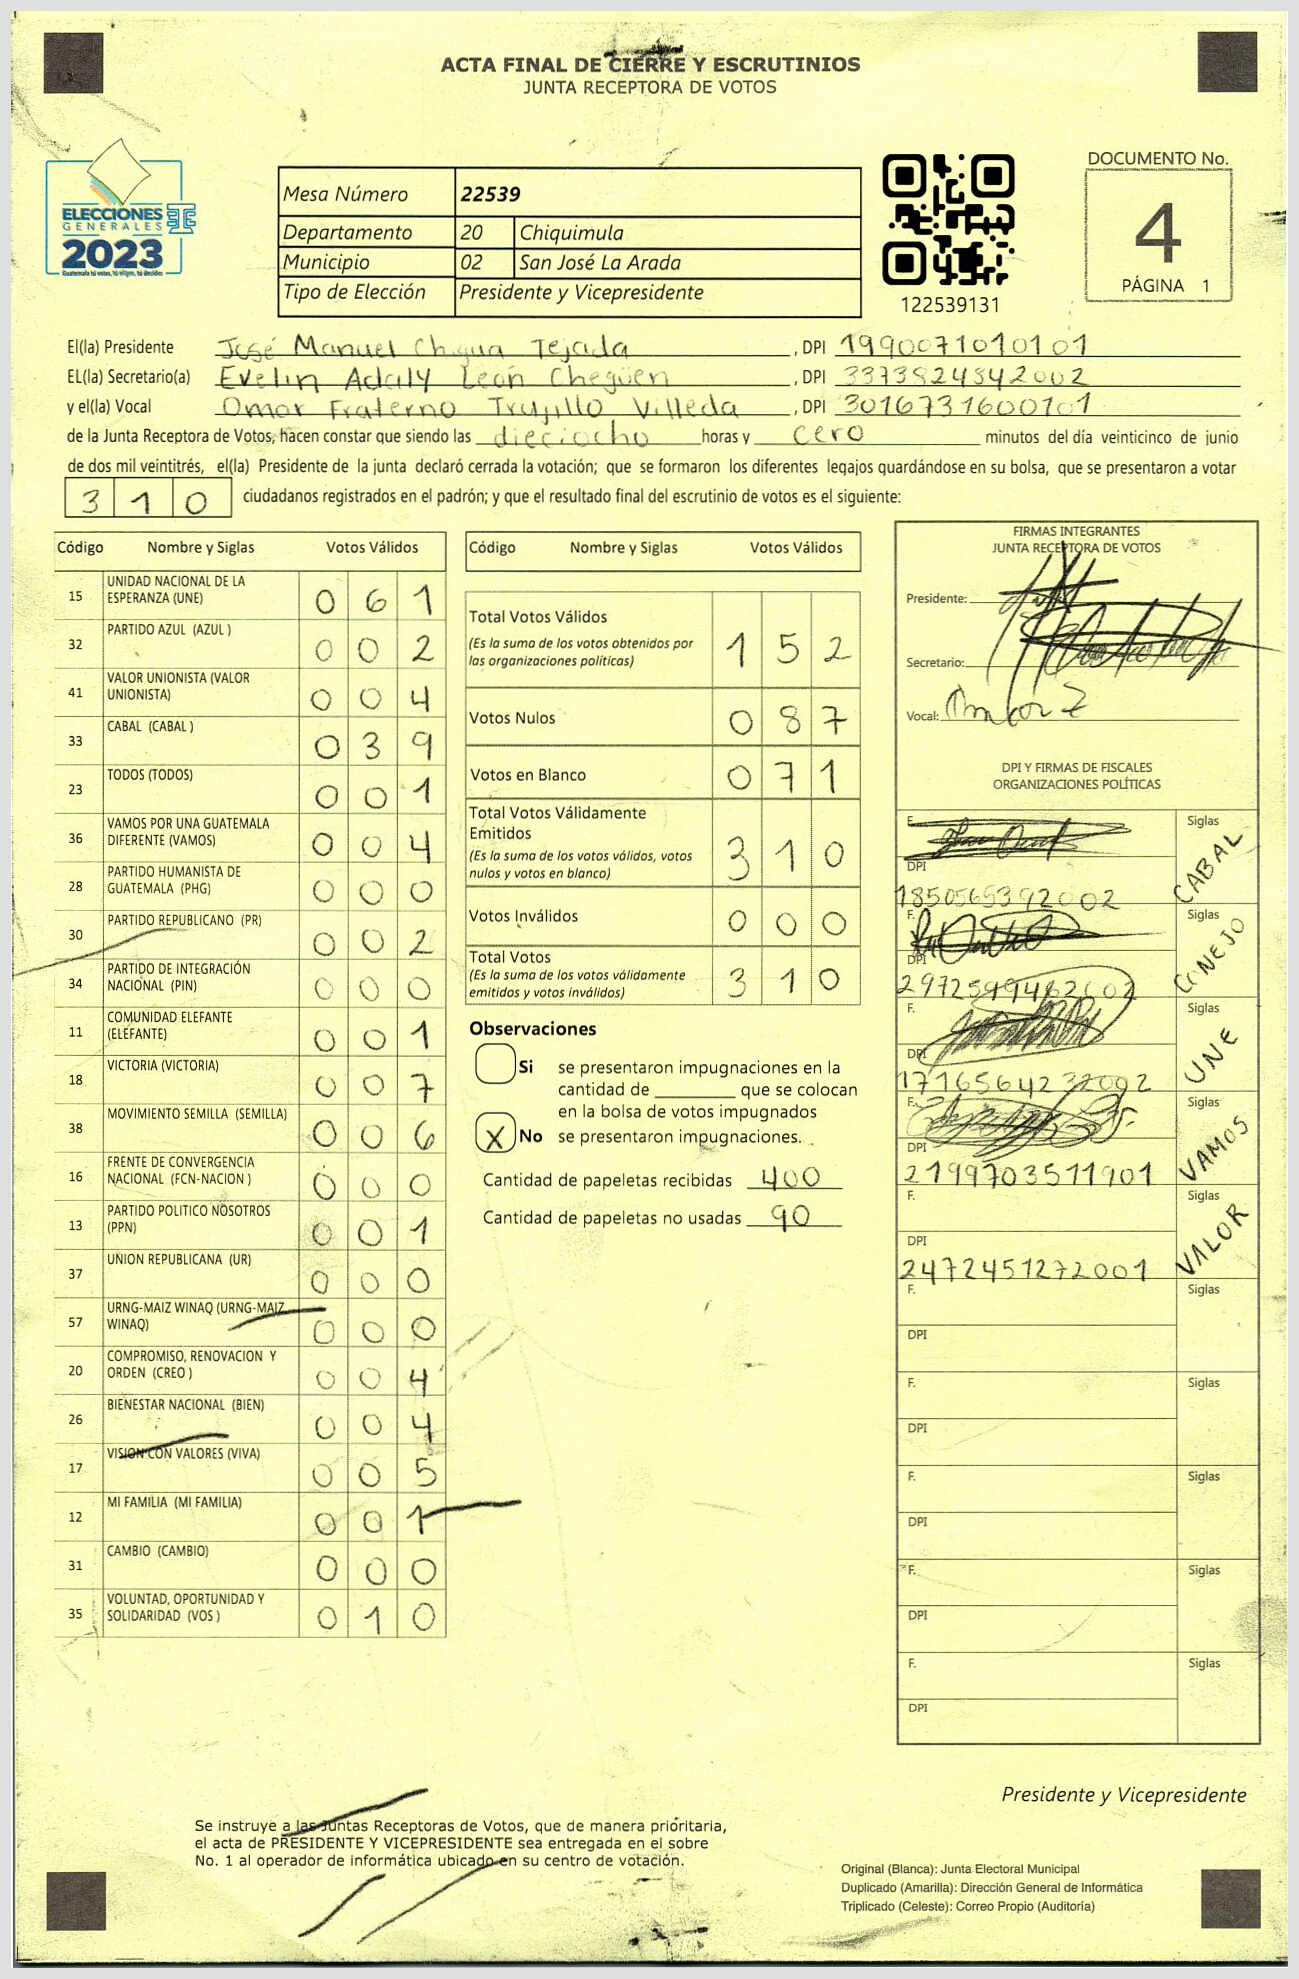 ACTA FINAL DE CIERRE Y ESCRUTINIOS
JUNTA RECEPTORA DE VOTOS
ELECCIONES
GENERALES
2023
Guatemala tú votas, tú eliges, tú decides
Mesa Número 22539
Departamento 20 Chiquimula
Municipio 02 San José La Arada
Tipo de Elección Presidente y Vicepresidente
122539131
DOCUMENTO No.
4
PÁGINA 1
El(la) Presidente José Manuel Chigua Tejada , DPI 1990071010101
EL(la) Secretario(a) Evelin Adaly León Chegüen , DPI 3373824842002
y el(la) Vocal Omar Fraterno Trujillo Villeda , DPI 3016731600101
de la Junta Receptora de Votos, hacen constar que siendo las dieciocho horas y cero minutos del día veinticinco de junio
de dos mil veintitrés, el(la) Presidente de la junta declaró cerrada la votación; que se formaron los diferentes legajos quardándose en su bolsa, que se presentaron a votar
310 ciudadanos registrados en el padrón; y que el resultado final del escrutinio de votos es el siguiente:
Código Nombre y Siglas Votos Válidos
15 UNIDAD NACIONAL DE LA ESPERANZA (UNE) 061
32 PARTIDO AZUL (AZUL ) 002
41 VALOR UNIONISTA (VALOR UNIONISTA) 004
33 CABAL (CABAL ) 039
23 TODOS (TODOS) 001
36 VAMOS POR UNA GUATEMALA DIFERENTE (VAMOS) 004
28 PARTIDO HUMANISTA DE GUATEMALA (PHG) 000
30 PARTIDO REPUBLICANO (PR) 002
34 PARTIDO DE INTEGRACIÓN NACIONAL (PIN) 000
11 COMUNIDAD ELEFANTE (ELEFANTE) 001
18 VICTORIA (VICTORIA) 007
38 MOVIMIENTO SEMILLA (SEMILLA) 006
16 FRENTE DE CONVERGENCIA NACIONAL (FCN-NACION ) 000
13 PARTIDO POLITICO NOSOTROS (PPN) 001
37 UNION REPUBLICANA (UR) 000
57 URNG-MAIZ WINAQ (URNG-MAIZ WINAQ) 000
20 COMPROMISO, RENOVACION Y ORDEN (CREO ) 004
26 BIENESTAR NACIONAL (BIEN) 004
17 VISION CON VALORES (VIVA) 005
12 MI FAMILIA (MI FAMILIA) 001
31 CAMBIO (CAMBIO) 000
35 VOLUNTAD, OPORTUNIDAD Y SOLIDARIDAD (VOS ) 010
Código Nombre y Siglas Votos Válidos
Total Votos Válidos 152
(Es la suma de los votos obtenidos por
las organizaciones políticas)
Votos Nulos 087
Votos en Blanco 071
Total Votos Válidamente
Emitidos 310
(Es la suma de los votos válidos, votos
nulos y votos en blanco)
Votos Inválidos 000
Total Votos 310
(Es la suma de los votos válidamente
emitidos y votos inválidos)
Observaciones
Si se presentaron impugnaciones en la
cantidad de ________ que se colocan
en la bolsa de votos impugnados
X No se presentaron impugnaciones.
Cantidad de papeletas recibidas 400
Cantidad de papeletas no usadas 90
FIRMAS INTEGRANTES
JUNTA RECEPTORA DE VOTOS
Presidente:
Secretario:
Vocal:
DPI Y FIRMAS DE FISCALES
ORGANIZACIONES POLÍTICAS
F. Siglas CABAL
DPI
1850565392002
F. Siglas CONEJO
DPI
2972599482002
F. Siglas UNE
DPI
1716564232002
F. Siglas VAMOS
DPI
2199703511901
F. Siglas VALOR
DPI
2472451272001
F. Siglas
DPI
F. Siglas
DPI
F. Siglas
DPI
F. Siglas
DPI
F. Siglas
DPI
Presidente y Vicepresidente
Se instruye a las Juntas Receptoras de Votos, que de manera prioritaria,
el acta de PRESIDENTE Y VICEPRESIDENTE sea entregada en el sobre
No. 1 al operador de informática ubicado en su centro de votación.
Original (Blanca): Junta Electoral Municipal
Duplicado (Amarilla): Dirección General de Informática
Triplicado (Celeste): Correo Propio (Auditoría)